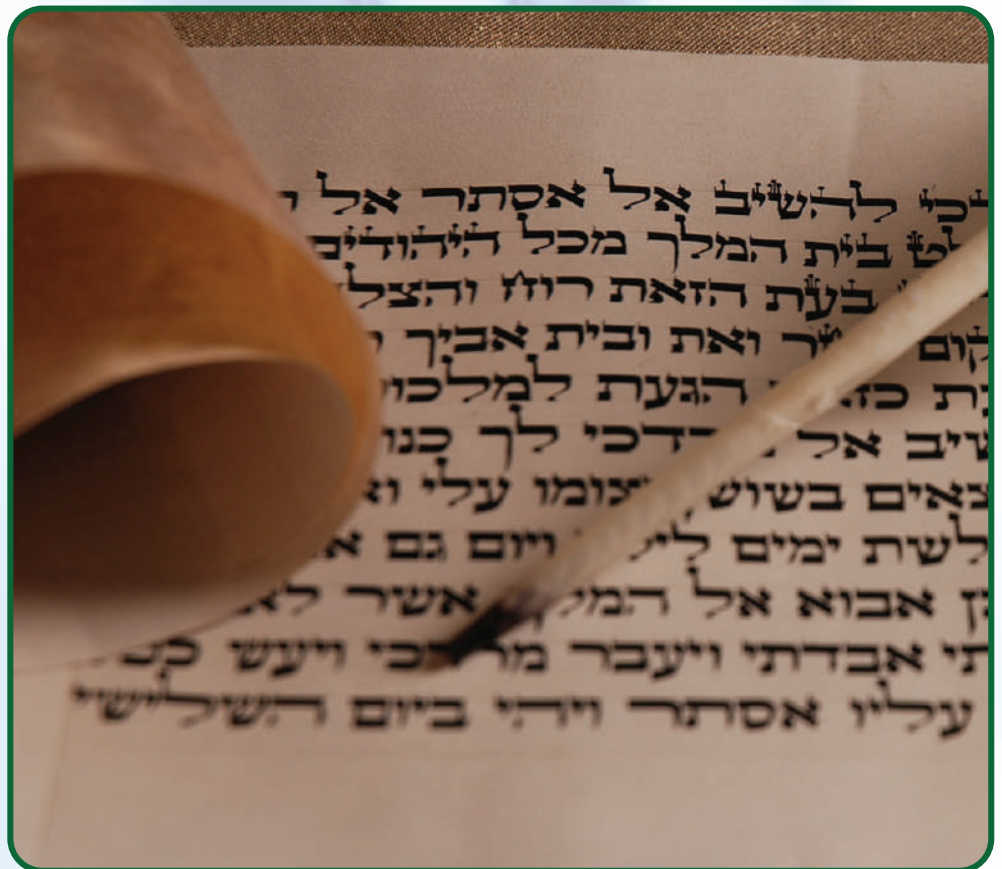 כי להשיב אל אסתר אל
לט בית המלך מכל היהודים
בעת הזאת רוח והצל
קום ואת ובית אביך
הגעת למלכו
שיב אל לך כנו
צאים עלי וא
לשת ימים ויום גם א
ן אבוא אל אשר לא
תי אבדתי ויעבר ויעש
עליו אסתר ויהי ביום השלישי